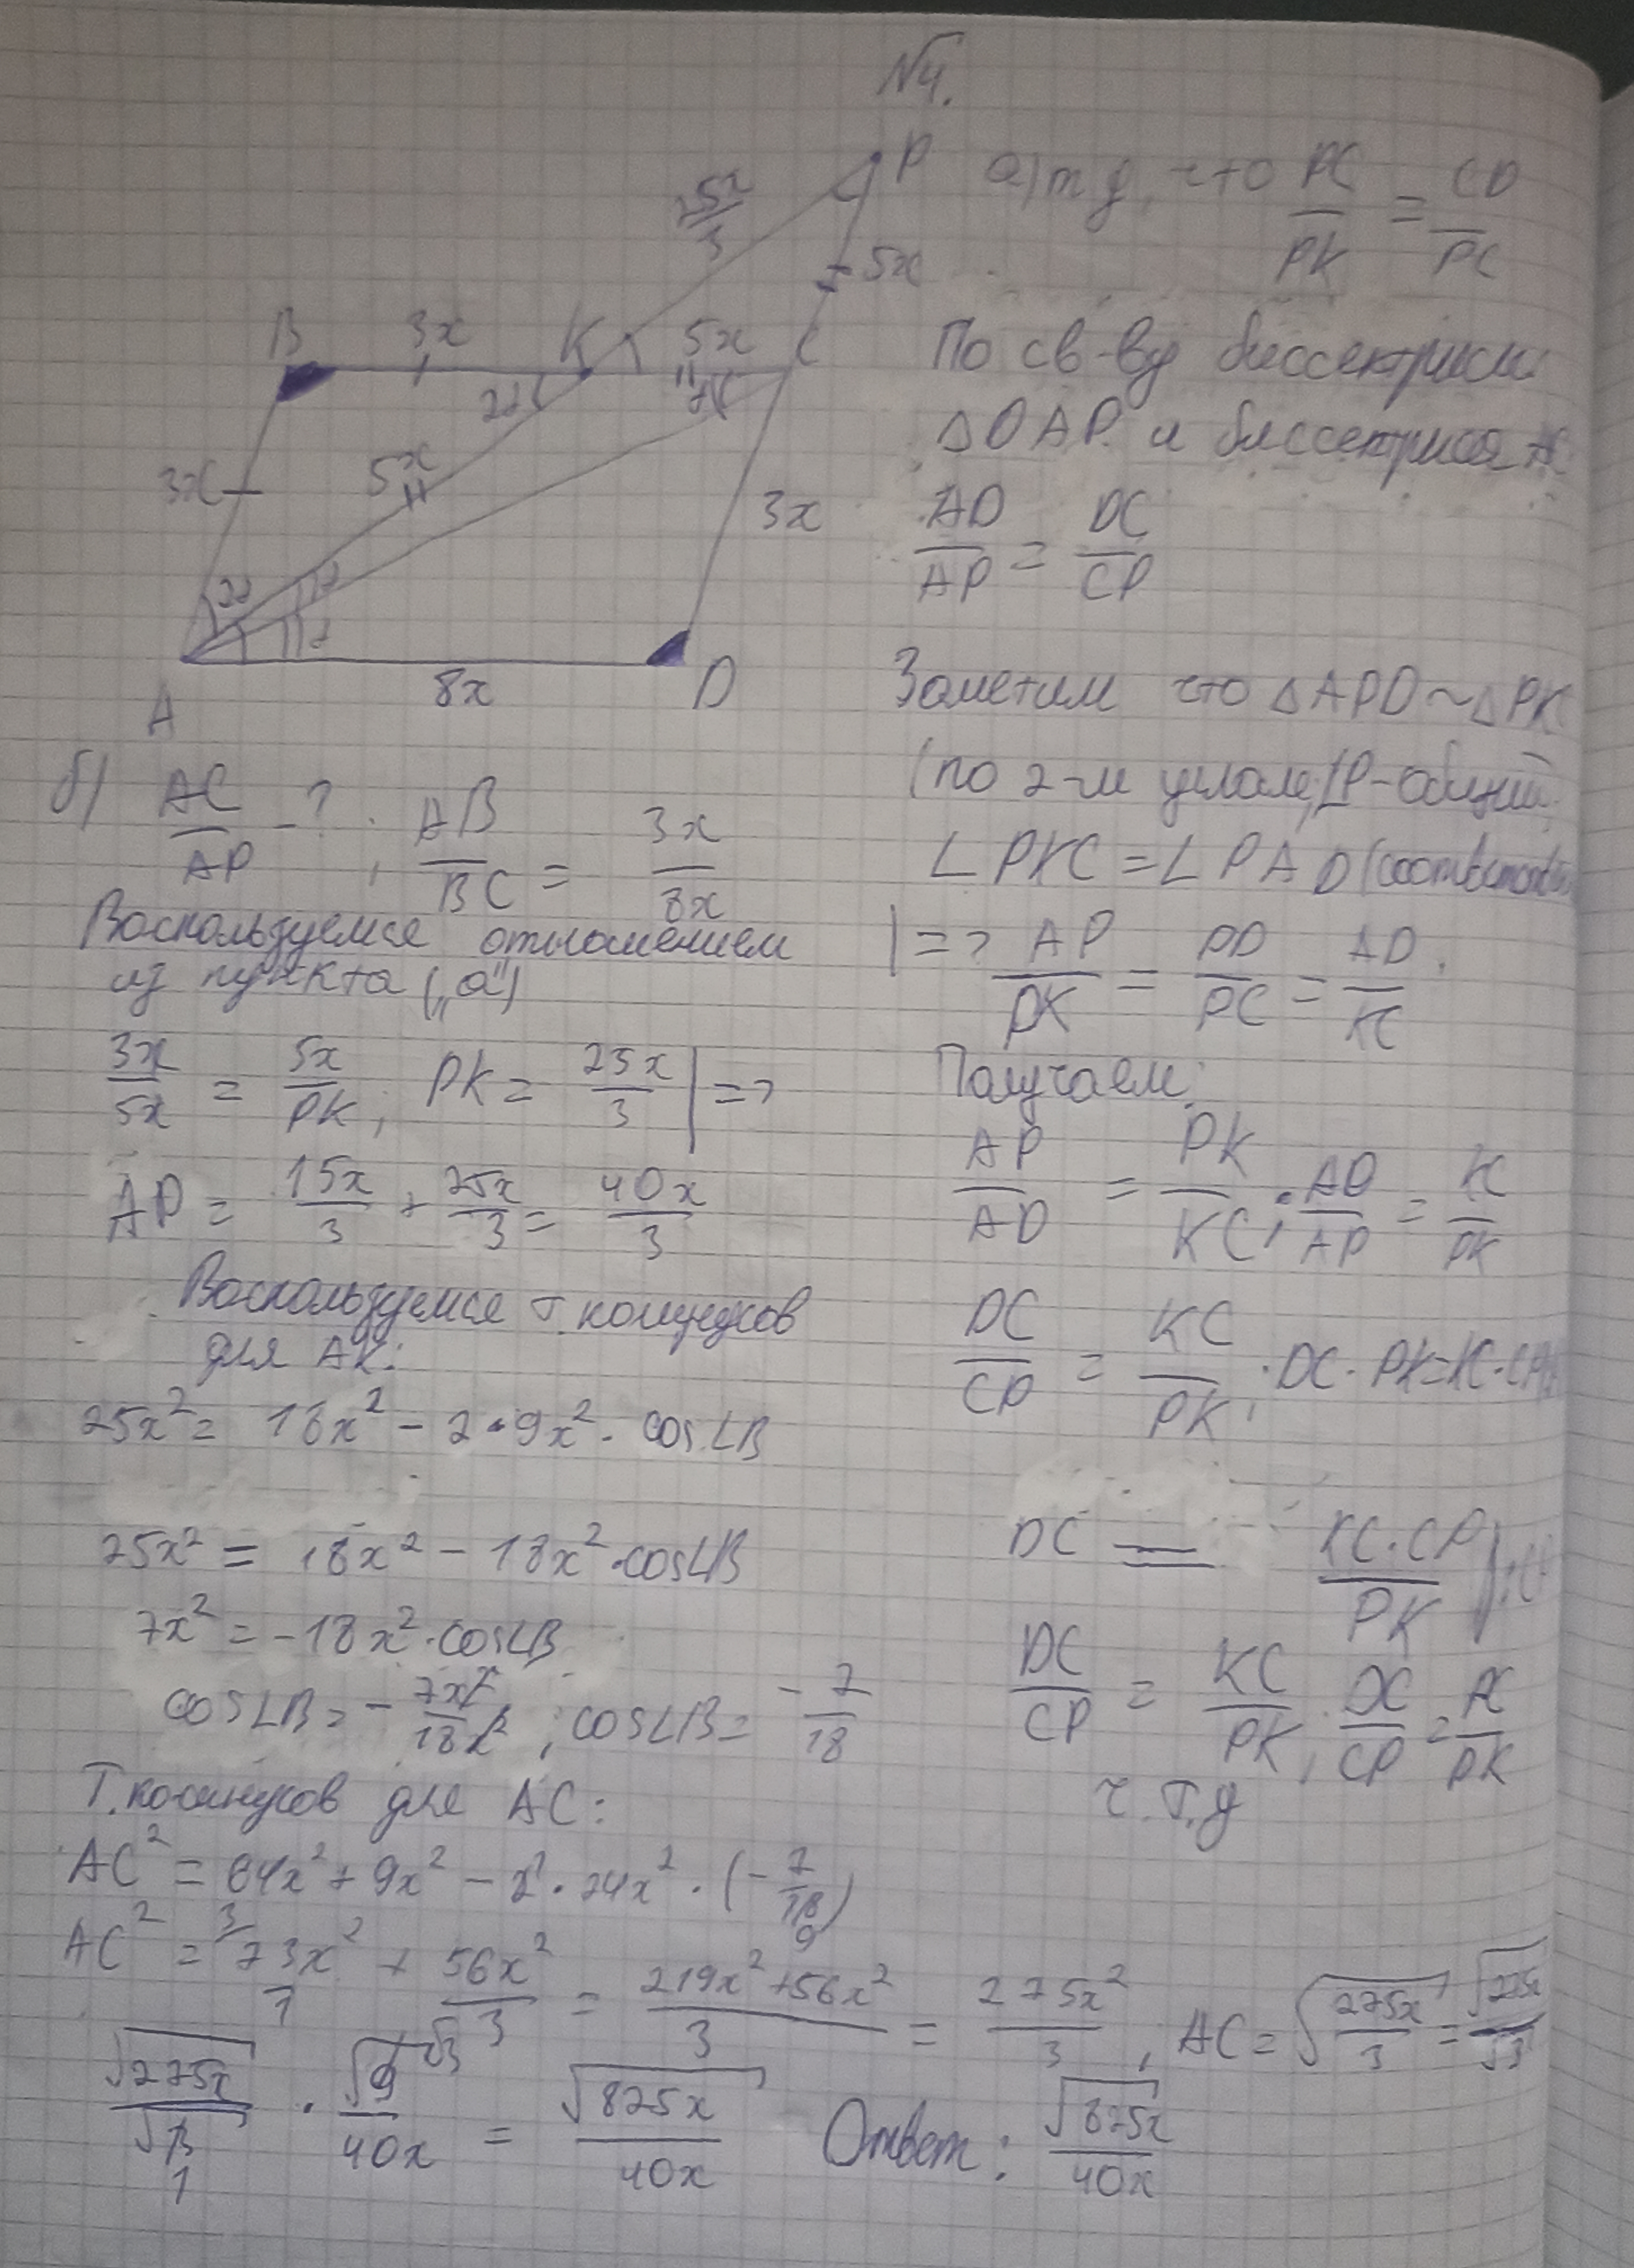 №4.
P
25x/3
5x
B
3x
K
5x
C
2α
α
3x
5x
3x
2α
α
α
A
8x
D
а) т д, что PC/PK = CD/PC
По св-ву биссектрисы
△DAP и биссектриса AC
AD/AP = DC/CP
Заметим что △APD ~ △PK
(по 2-м углам, ∠P-общий,
∠PKC = ∠PAD (соответств
| => AP/PK = PD/PC = AD/KC.
Получаем:
AP/AD = PK/KC; AD/AP = KC/PK
DC/CP = KC/PK, DC · PK = KC · CP
DC = KC · CP/PK
DC/CP = KC/PK, DC/CP = KC/PK
ч.т.д
б) AC/AP - ?, AB/BC = 3x/8x
Воспользуемся отношением
из пункта („а")
3x/5x = 5x/PK, PK = 25x/3 | =>
AP = 15x/3 + 25x/3 = 40x/3
Воспользуемся т. косинусов
для AK:
25x² = 18x² - 2 · 9x² · cos∠B
25x² = 18x² - 18x² · cos∠B
7x² = -18x² · cos∠B
cos∠B = - 7x²/18x², cos∠B = -7/18
Т. косинусов для AC:
AC² = 64x² + 9x² - 2 · 24x² · (-7/18)
9
AC² = 73x²/1 + 56x²/3 = 219x² + 56x²/3 = 275x²/3, AC = √275x/3 = √275x/√3
√275x/√3 · √9/40x = √825x/40x Ответ: √825x/40x